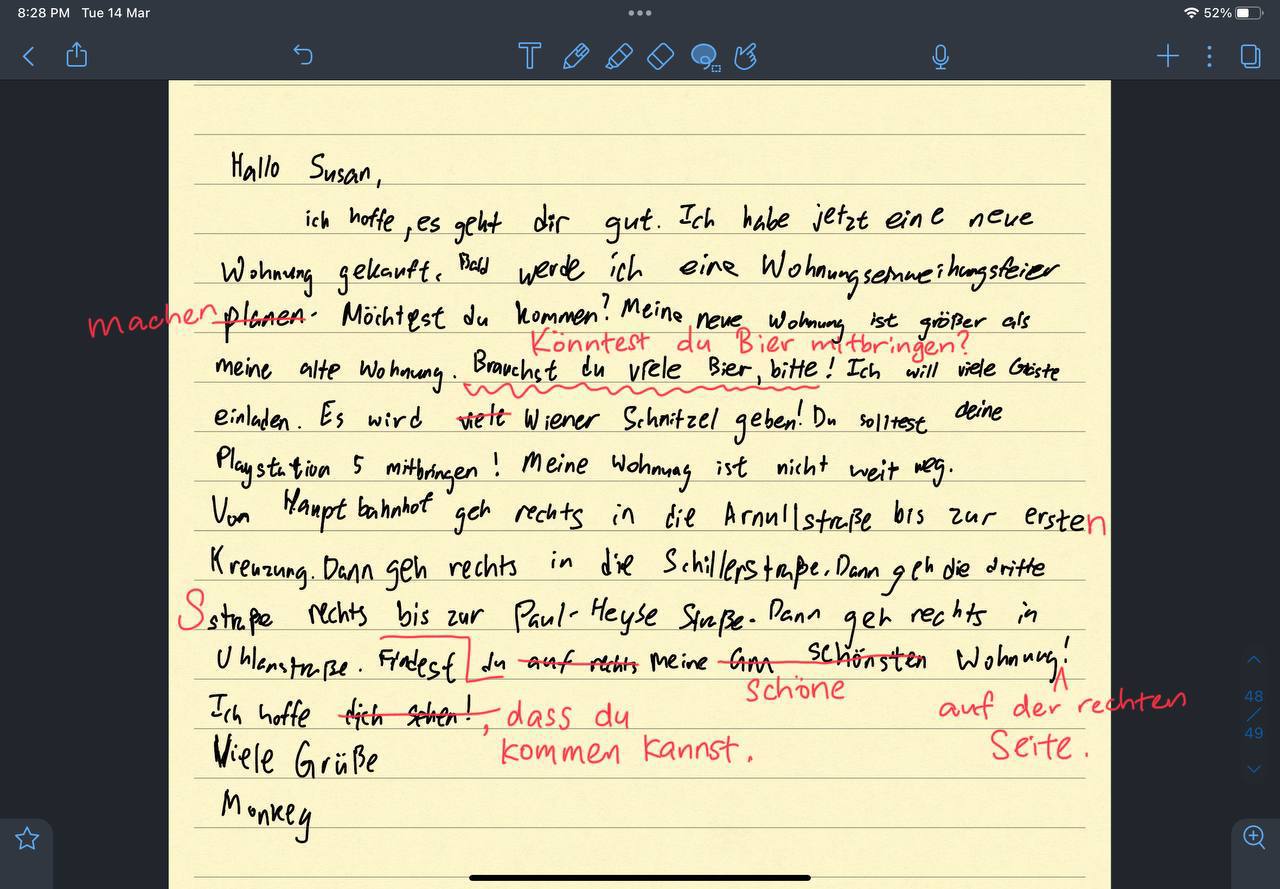 8:28 PM Tue 14 Mar
52%
Hallo Susan,
ich hoffe, es geht dir gut. Ich habe jetzt eine neue
Wohnung gekauft. Bald werde ich eine Wohnungseinweihungsfeier
machen planen. Möchtest du kommen? Meine neue Wohnung ist größer als
Könntest du Bier mitbringen?
meine alte Wohnung. Brauchst du viele Bier, bitte! Ich will viele Gäste
einladen. Es wird viele Wiener Schnitzel geben! Du solltest deine
Playstation 5 mitbringen! Meine Wohnung ist nicht weit weg.
Von Hauptbahnhof geh rechts in die Arnullstraße bis zur ersten
Kreuzung. Dann geh rechts in die Schillerstraße. Dann geh die dritte
S straße rechts bis zur Paul-Heyse Straße. Dann geh rechts in
Uhlanstraße. Findest du auf rechts meine am schönsten Wohnung!
schöne
auf der rechten
Seite.
Ich hoffe dich sehen!, dass du
kommen kannst.
Viele Grüße
Monkey
48
49